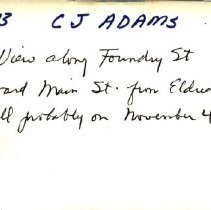 3 C J ADAMS
View along Foundry St
ard Main St. from Eldre
ll probably on November 4